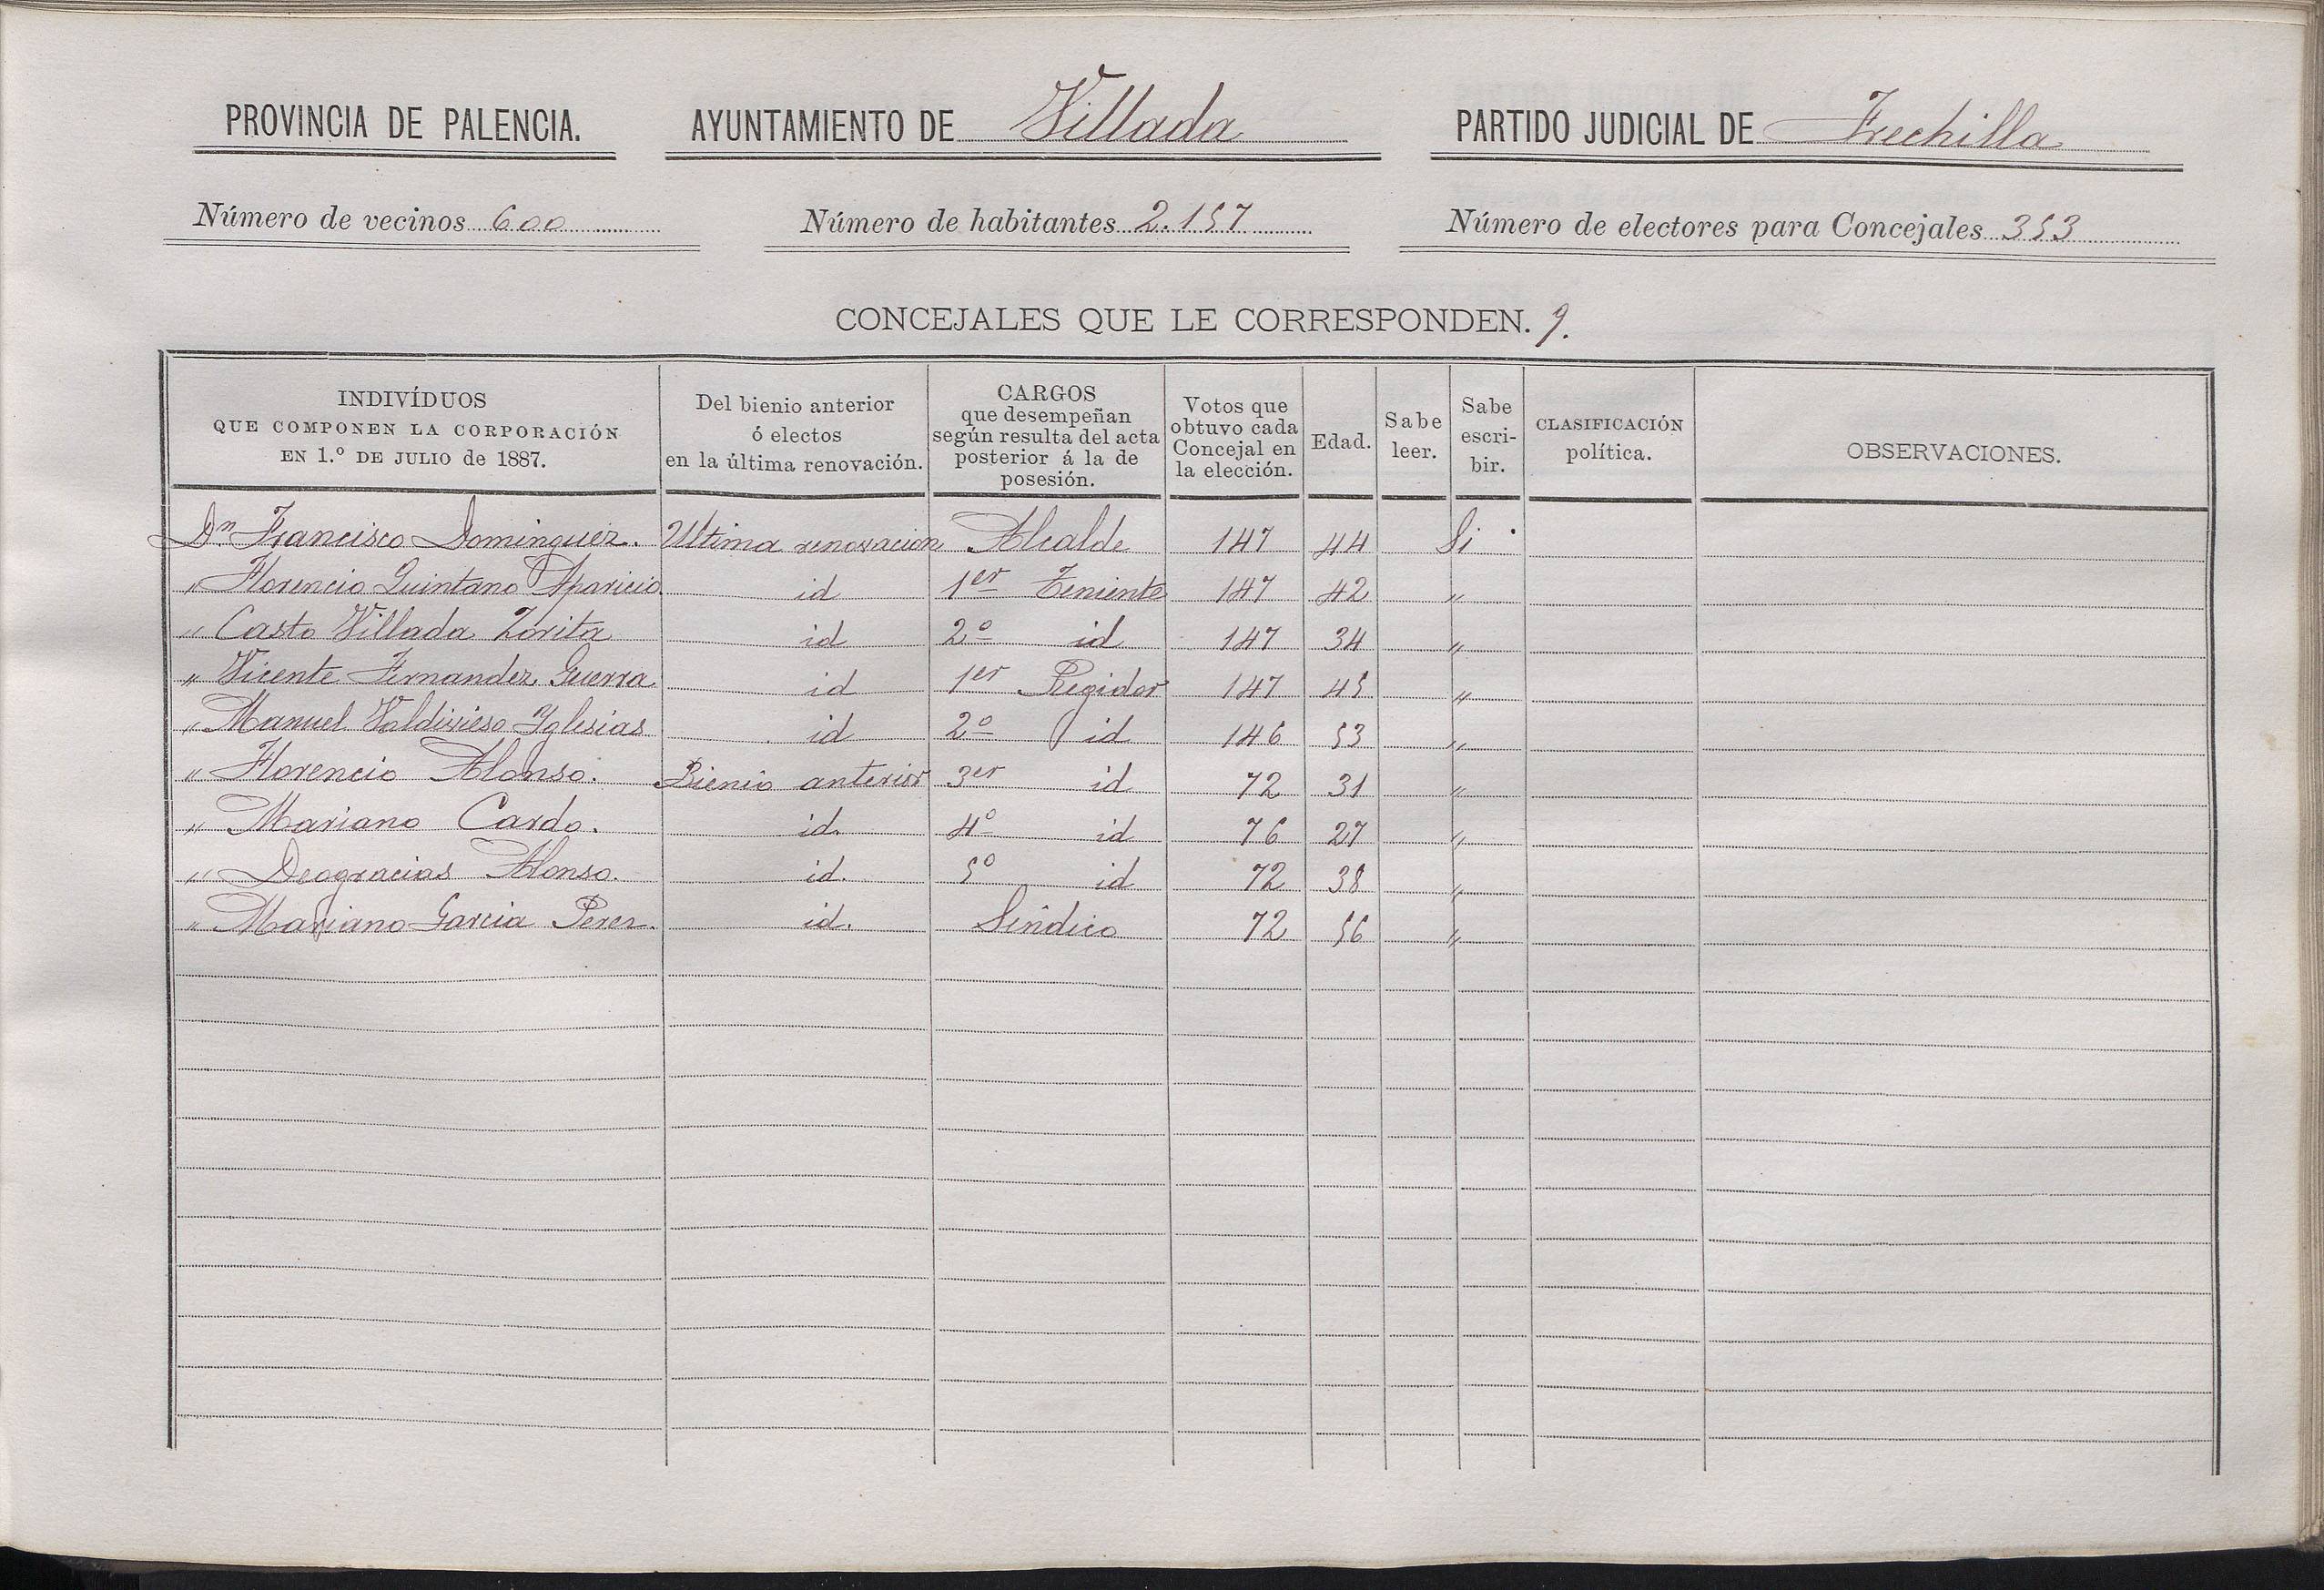 PROVINCIA DE PALENCIA. AYUNTAMIENTO DE Villada PARTIDO JUDICIAL DE Frechilla
Número de vecinos 600 Número de habitantes 2.157 Número de electores para Concejales 353
CONCEJALES QUE LE CORRESPONDEN. 9.
INDIVÍDUOS
QUE COMPONEN LA CORPORACIÓN
EN 1.º DE JULIO de 1887.
Del bienio anterior
ó electos
en la última renovación.
CARGOS
que desempeñan
según resulta del acta
posterior á la de
posesión.
Votos que
obtuvo cada
Concejal en
la elección.
Edad.
Sabe
leer.
Sabe
escri-
bir.
CLASIFICACIÓN
política.
OBSERVACIONES.
Dn Francisco Dominguez. Ultima renovacion Alcalde 147 44 Si
" Florencio Quintano Aparicio id 1er Teniente 147 42 "
" Casto Villada Zorita id 2º id 147 34 "
" Vicente Fernandez Guerra id 1er Regidor 147 45 "
" Manuel Valdivieso Yglesias id 2º id 146 53 "
" Florencio Alonso. Bienio anterior 3er id 72 31 "
" Mariano Cardo. id. 4º id 76 27 "
" Deogracias Alonso. id. 5º id 72 38 "
" Mariano Garcia Perez. id. Sindico 72 56 "